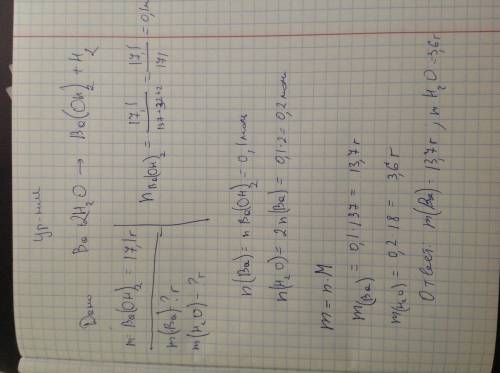 Ур-ние
Дано Ba 2H2O → Ba(OH)2 + H2
m Ba(OH)2 = 17,1г
m(Ba) ? г
m(H2O) - ? г
n Ba(OH)2 = 17,1 / 137+32+2 = 17,1 / 171 = 0,1 м
n(Ba) = n Ba(OH)2 = 0,1 моль
n(H2O) = 2n(Ba) = 0,1·2 = 0,2 моль
m = n·M
m(Ba) = 0,1·137 = 13,7 г
m(H2O) = 0,2·18 = 3,6 г
Ответ: m(Ba) = 13,7 г, m H2O = 3,6 г